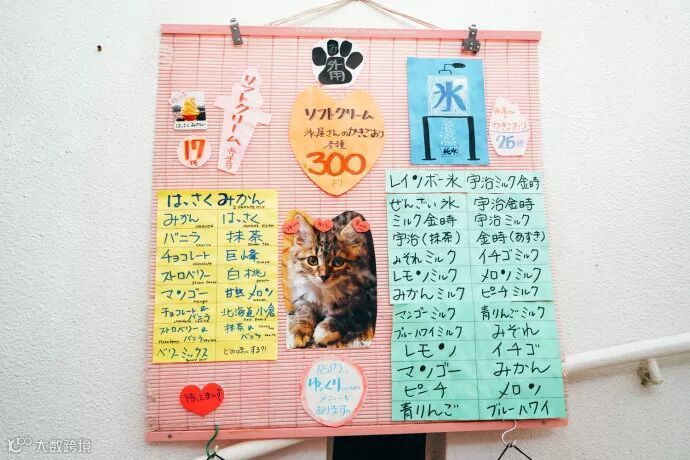 お
外用
ソフトクリーム
あります
はっさくみかん
17種
ソフトクリーム
氷屋さんのかきごおり
各種
300
より
氷
かきごおり
26種
はっさくみかん
みかん はっさく
バニラ 抹茶
チョコレート 巨峰
ストロベリー 白桃
マンゴー 甘熟メロン
チョコレート&バニラ 北海道小倉
ストロベリー&バニラ 抹茶&バニラ
ベリーミックス どのはいする?!
レインボー氷 宇治ミルク金時
ぜんざい氷 宇治金時
ミルク金時 宇治ミルク
宇治(抹茶) 金時(あずき)
みぞれミルク イチゴミルク
レモンミルク メロンミルク
みかんミルク ピーチミルク
マンゴーミルク 青りんごミルク
ブルーハワイミルク みぞれ
レモン イチゴ
マンゴー みかん
ピーチ メロン
青りんご ブルーハワイ
店内
ゆっくり
メニューも
あります。
大数跨境